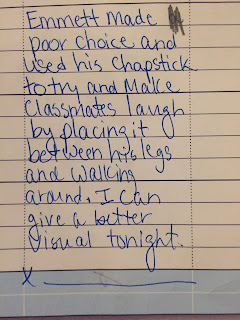 Emmett made
poor choice and
used his Chapstick
to try and Make
Classmates laugh
by placing it
between his legs
and walking
around. I can
give a better
visual tonight.
X